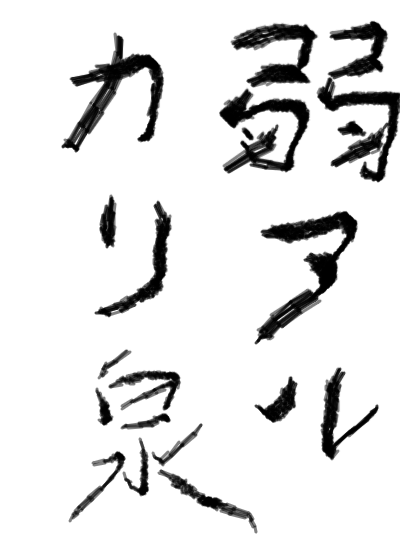 弱アル
カリ泉